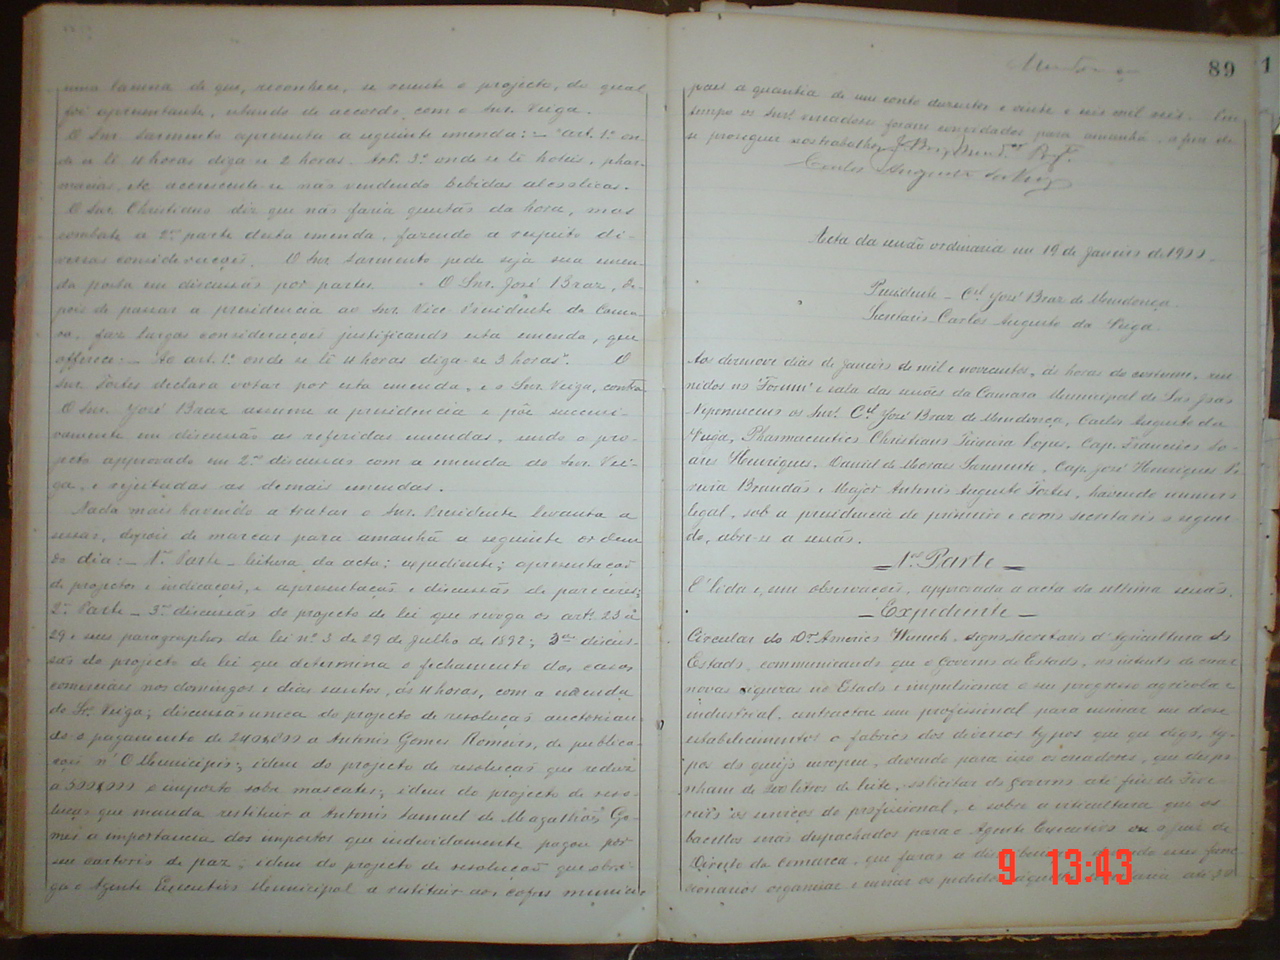 uma lacuna de que, reconhece, se resente o projecto, do qual
foi apresentante, estando de accordo com o Snr. Veiga.
O Snr. Sarmento apresenta a seguinte emenda: — "Art. 1º on-
de se lê 4 horas diga se 2 horas. Art. 3º onde se lê hoteis, phar-
macias, &c accrescente se não vendendo bebidas alcoolicas.
O Snr. Christiano diz que não faria questão da hora, mas
combate a 2ª parte desta emenda, fazendo a respeito di-
versas considerações. O Snr. Sarmento pede seja sua emen-
da posta em discussão por partes. O Snr. José Braz, de-
pois de passar a presidencia ao Snr. Vice Presidente da Cama-
ra, faz largas considerações justificando esta emenda, que
offerece: — "Ao art. 1º onde se lê 4 horas diga se 3 horas". O
Snr. Fortes declara votar por esta emenda, e o Snr. Veiga, contra
O Snr. José Braz assume a presidencia e põe succesi-
vamente em discussão as referidas emendas, sendo o pro-
jecto approvado em 2ª discussão com a emenda do Snr. Vei-
ga, e rejeitadas as demais emendas.
Nada mais havendo a tratar o Snr. Presidente levanta a
sessão, depois de marcar para amanhã a seguinte ordem
do dia: — 1ª Parte — leitura da acta; expediente; apresentação
de projectos e indicações, e apresentação e discussão de pareceres;
2ª Parte — 3ª discussão do projecto de lei que revoga os artºs 23 a
29 e seus paragraphos da lei nº 3 de 29 de Julho de 1892; 3ª discus-
são do projecto de lei que determina o fechamento das casas
comerciais nos domingos e dias santos, ás 4 horas, com a emenda
do Sr. Veiga; discussão unica do projecto de resolução auctorisan-
do o pagamento de a Antonio Gomes Romeiro, de publica-
ções n' O Municipio; idem do projecto de resolução que reduz
a o imposto sobre mascates; idem do projecto de reso-
lução que manda restituir a Antonio Samuel de Magalhães Go-
mes a importancia dos impostos que indevidamente pagou por
seu cartorio de paz; idem do projecto de resolução que obri-
ga o Agente Executivo Municipal a restituir aos cofres munici-
89
paes a quantia de um conto duzentos e vinte e seis mil reis. Em
tempo os Snrs. vereadores foram convidados para amanhã, a fim de
se proseguir nos trabalhos.
Carlos Augusto da Veiga
Acta da sessão ordinaria em 19 de Janeiro de 1900.
Presidente — Cel. José Braz de Mendonça.
Secretario Carlos Augusto da Veiga.
Aos dezenove dias de Janeiro de mil e novecentos, ás horas do costume, reu-
nidos no "Forum" e sala das sessões da Camara Municipal de São João
Nepomuceno os Snrs. Cel. José Braz de Mendonça, Carlos Augusto da
Veiga, Pharmaceutico Christiano Teixeira Lopes, Cap. Francisco So-
ares Henriques, Daniel de Moraes Sarmento, Cap. José Henriques Pe-
reira Brandão e Major Antonio Augusto Fortes, havendo numero
legal, sob a presidencia do primeiro e como secretario o segun-
do, abre-se a sessão.
— 1ª Parte —
E' lida e, sem observação, approvada a acta da ultima sessão.
— Expediente —
Circular do Dr. Americo Werneck, digno secretario d'Agricultura do
Estado, communicando que o Governo do Estado, no intento de crear
novas riquezas no Estado e impulsionar o seu progresso agricola e
industrial, contractou um profissional para ensinar em doze
estabelecimentos o fabrico dos diversos typos que, digo, ty-
pos de queijo europeu, devendo para isso os creadores, que dispo-
nham de litros de leite, solicitar do Governo até fins de Feve-
reiro os serviços do profissional, e sobre a viticultura que os
bacellos serão despachados para o Agente Executivo ou o Juiz de
Direito da Comarca, que fará a
cionarios organisar e enviar os pedidos até 30
9 13:43
1